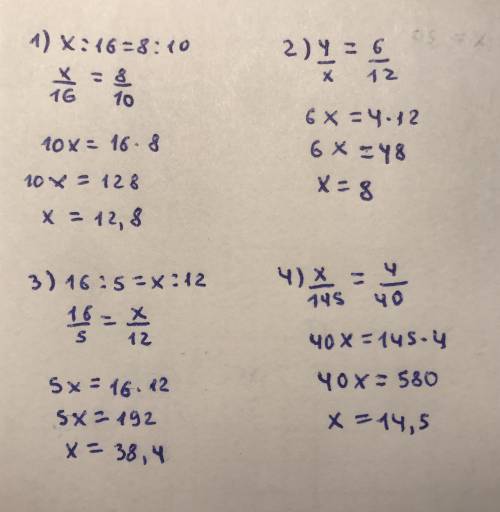 1) x : 16 = 8 : 10
x/16 = 8/10
10x = 16 · 8
10x = 128
x = 12,8
2) 4/x = 6/12
6x = 4 · 12
6x = 48
x = 8
3) 16 : 5 = x : 12
16/5 = x/12
5x = 16 · 12
5x = 192
x = 38,4
4) x/145 = 4/40
40x = 145 · 4
40x = 580
x = 14,5